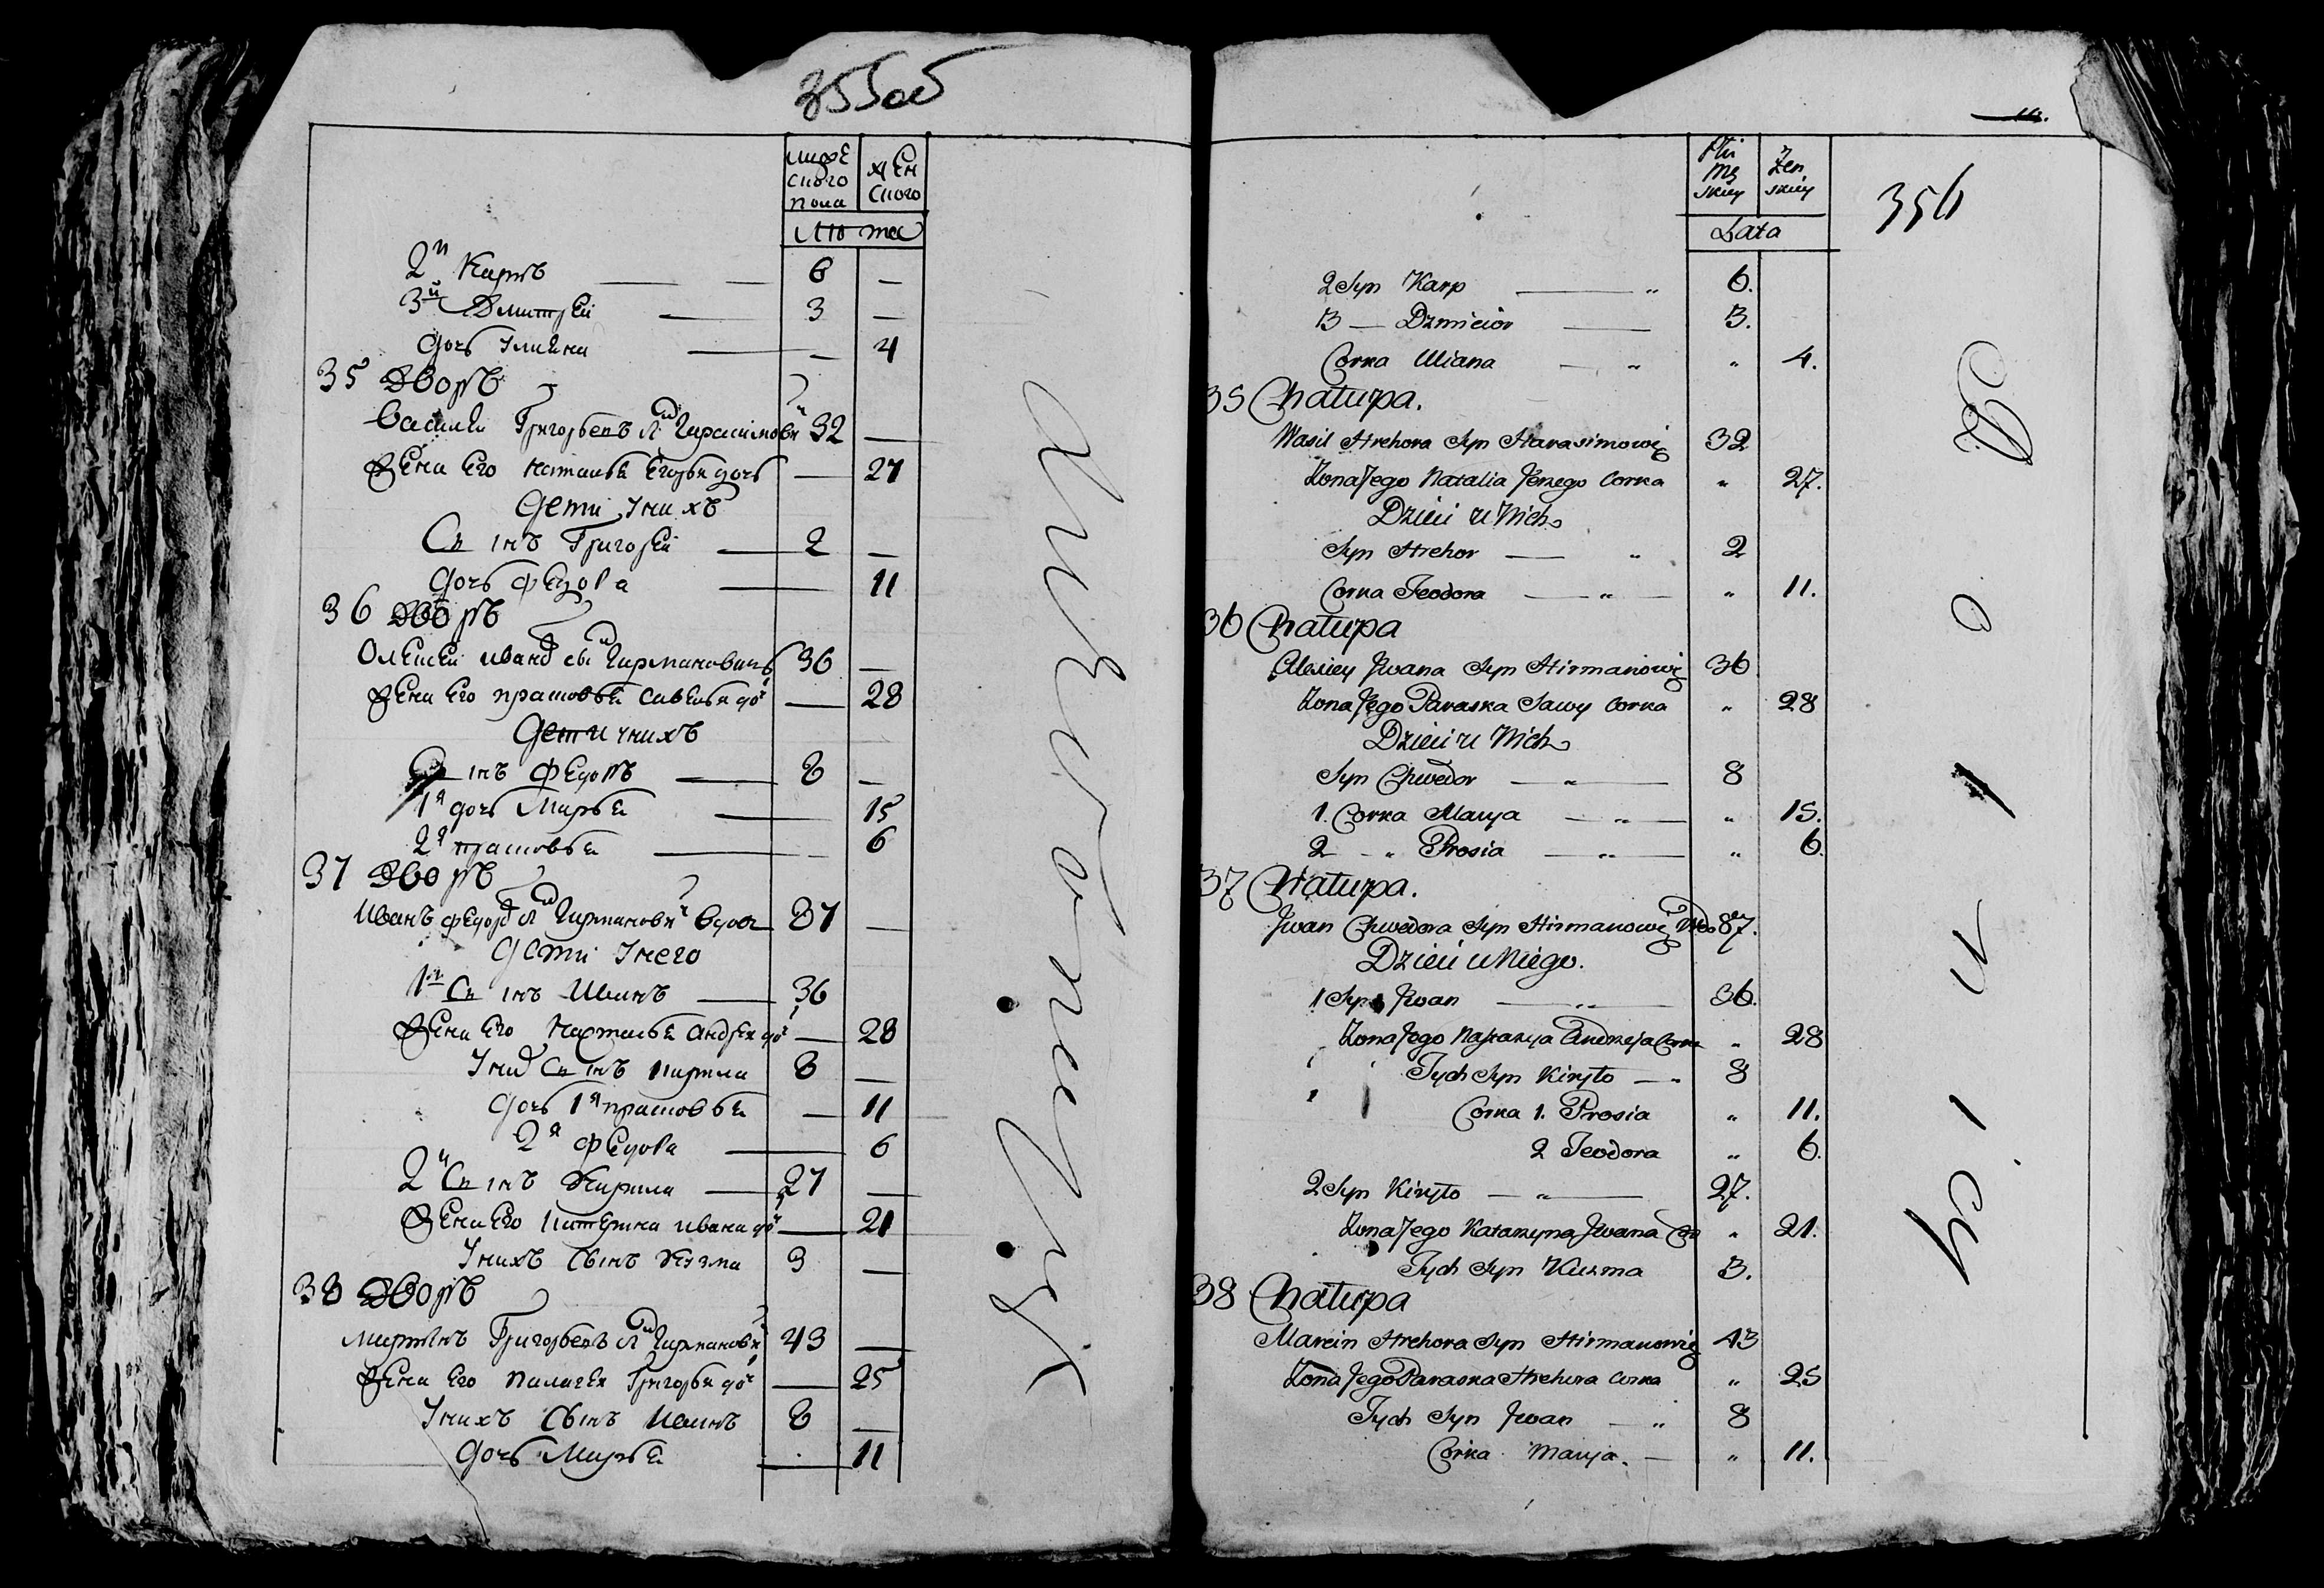 355об
мужеского пола
женского
лета
2й Карпъ — 6 —
3й Дмитрей — 3 —
дочь Улиана — — 4
35 Дворъ
Василей Григорьевъ Гарасимови 32 —
Жена Его Наталья Егорьи дочь — 27
дети у нихъ
Сынъ Григорей — 2 —
дочь Федора — 11
36 Дворъ
Олексей Иванов сы Гирмановичъ 36 —
Жена Его прасковья Савельи до — 28
дети у нихъ
Сынъ Федоръ — 8 —
1я дочь Марья — 15
2я прасковья — 6
37 Дворъ
Иванъ федоро Гирманови вдов 87 —
дети у него
1й Сынъ Иванъ — 36
Жена Его Настасья Андреи до — 28
у них Сынъ Кирила 8 —
дочь 1я прасковья — 11
2я Федора — 6
2й Сынъ Кирила — 27 —
Жена Его Катерина Ивана до — 21
у нихъ Сынъ Кузма 3 —
38 Дворъ
Мартинъ Григорьевъ Гирманови 43 —
Жена Его Палагея Григорьи до — 25
у нихъ Сынъ Иванъ 8 —
дочь Марья — 11
Męskiey
Żenskiey
356
Lata
2 Syn Karp — „ 6.
3 — Dzmicior — 3.
Corka Uliana — „ „ 4.
35 Chatupa.
Wasil Hrehora Syn Harasimowicz 32
Żona Jego Natalia Jerzego Corka „ 27.
Dzieci u Nich
Syn Hrehor — „ 2
Corka Teodora — „ — „ 11.
36 Chatupa
Alexiey Jwana Syn Hirmanowicz 36
Żona Jego Paraska Sawy Corka „ 28
Dzieci u Nich
Syn Chwedor — „ — 8
1. Corka Marya — „ — „ 15.
2 — „ Prosia — „ — „ 6.
37 Chatupa.
Jwan Chwedora Syn Hirmanowicz Wdo 87.
Dzieci u Niego.
1 Syn Jwan — „ — 36.
Żona Jego Nastazya Andrzeja Corka „ 28
Tych Syn Kiryło — „ 8
Corka 1. Prosia „ 11.
2 Teodora „ 6.
2 Syn Kiryło — „ — 27.
Żona Jego Katarzyna Jwana Co „ 21.
Tych Syn Kuzma 3.
38 Chatupa
Marcin Hrehora Syn Hirmanowicz 43
Żona Jego Paraska Hrehora Corka „ 25
Tych Syn Jwan — „ 8
Corka Marya. — „ 11.